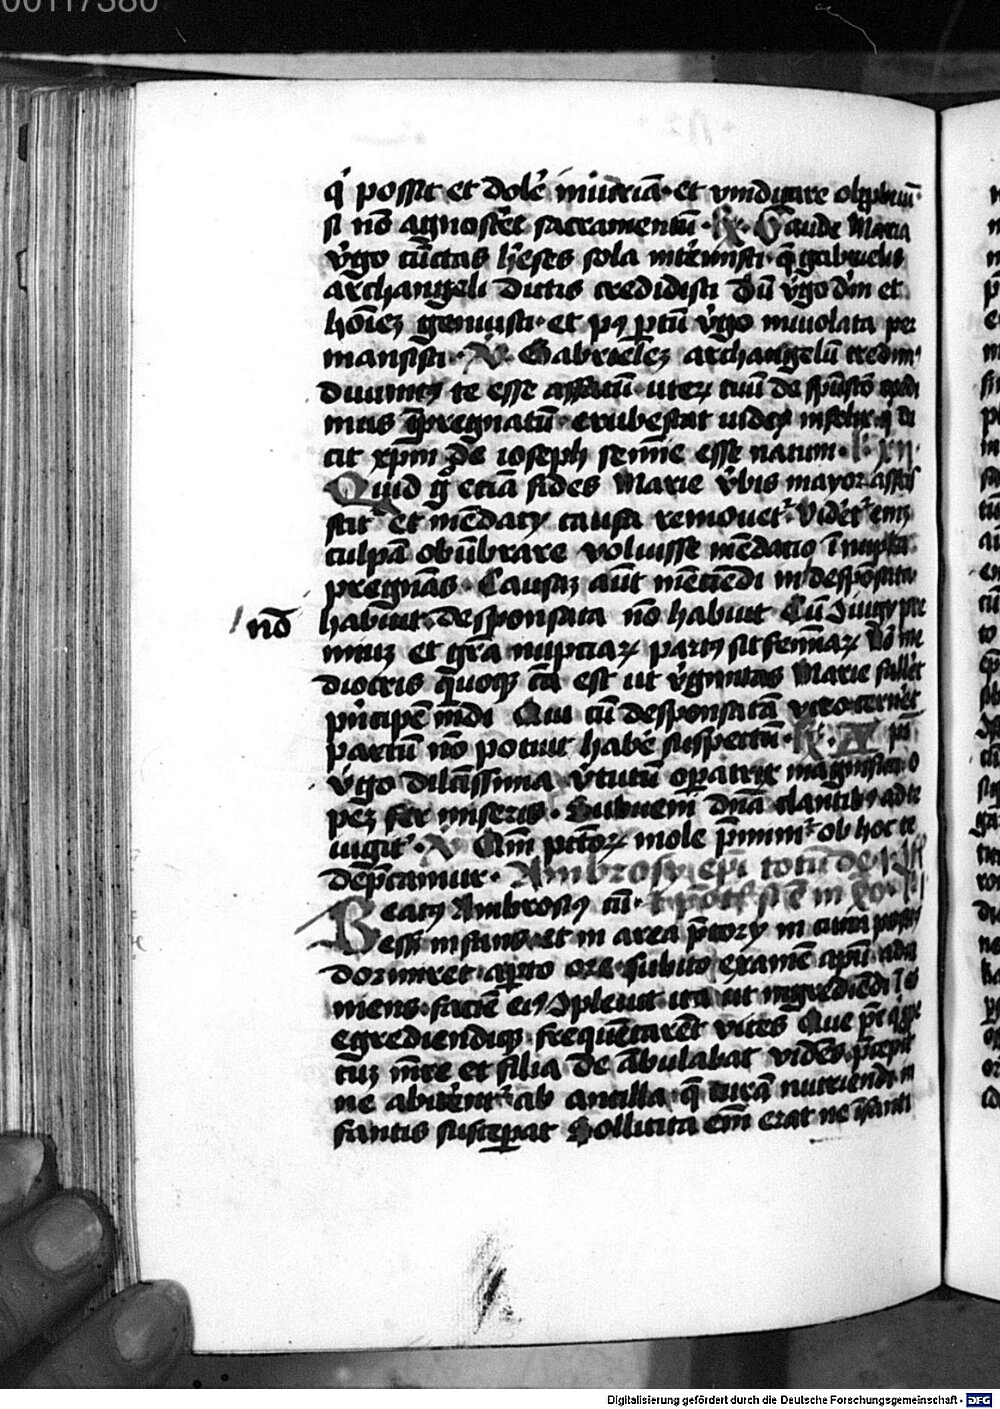 00117380
q̇ possit et dolē iniuriā · et vindicare obprͦbriū
si nō agnoscēt sacramentū · R̷ Gaude Maria
v̄go cūctas hēses sola intēmisti · q̄ gabrielis
archangeli dictis credidisti Dū v̄go dm̄ et
hōiēꝫ genuisti · et pꝰ ꝑtū v̄go inuiolata per
mansisti · V̷ Gabrieleꝫ archangelū credimꝰ
diuinitꝰ te esse affatū · uteꝝ tuū de spūsctō credi
mus īpregnatū · erubescat iudeꝰ infelix · q̇ di
cit xpm̄ de ioseph semīe esse natum · l · xii
Quid q̄ eciā fides Marie v̄bis mayor assci
scit et mēdacy causa remouet᷑ · Videret᷑ em̄
culpā obūbrare voluisse mēdacio īnupta
pregnās · Causaꝫ aūt mēciēdi nō despōsata
habuit · desponsata nō habuit Cū Jugy pre
miuꝫ et gr̄a nupciaꝝ partꝰ sit femīaꝝ Nō me
diocris quoqꝫ cā est ut v̄ginitas Marie fallēt
pn̄cipē mūdi Qui cū desponsatā viro cernēt
partū nō potuit habē suspectū · R̷ · A
v̄go dilcīssima v̄tutū oꝑatrix magnifica o
peꝫ fer miseris · Subueni dn̄a clantibꝰ ad te
iugit᷑ · V̷ Qm̄ pctōꝝ mole p̄mim᷑ ob hoc te
dep̄camur · Ambrosy ep̄i totū de
Beatꝰ Ambrosiꝰ cū ·
essꝫ infans et in area p̄tory in cuna positꝰ
dormiret aꝑto ore · subito examē apiū adue
niens · faciē eiꝰ ꝯpleuit · ita ut ingrediēdi
egrediendiqꝫ frequētarēt vices Que pr̄ eiꝰ
cuꝫ mr̄e et filia de ābulabat vidēs p̄cepit
ne abigent᷑ ab ancilla · q̄ curā nutriendi in
fantis suscepat Sollicita em̄ erat ne īfanti
nō
Digitalisierung gefördert durch die Deutsche Forschungsgemeinschaft · DFG